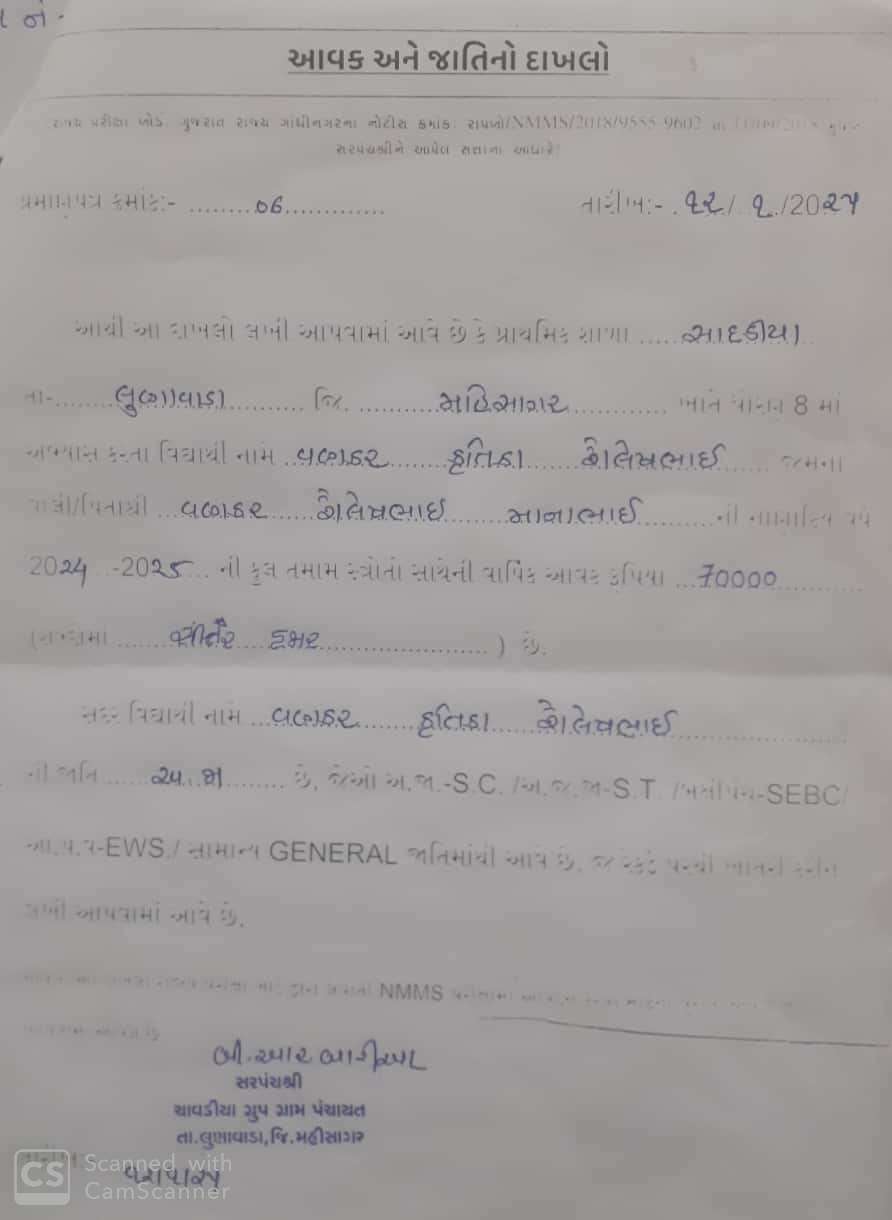 આવક અને જાતિનો દાખલો
રાજ્ય પરીક્ષા બોર્ડ, ગુજરાત રાજ્ય ગાંધીનગરના નોટીસ ક્રમાંક: રાપબો/NMMS/2018/9555-9602 તા
સરપંચશ્રીને આપેલ સત્તાના આધારે:
પ્રમાણપત્ર ક્રમાંક:- ........ 06 .............
તારીખ:- . ૧૨ / ૧ /20૨૫
આથી આ દાખલો લખી આપવામાં આવે છે કે પ્રાથમિક શાળા ..... સાદડીયા
તા-....... લુણાવાડા .......... જિ. .......... મહિસાગર ............ ખાતે ધોરણ 8 માં
અભ્યાસ કરતા વિદ્યાર્થી નામ .. વણકર ...... કૃતિકા ...... શૈલેષભાઈ ...... જેમના
વાલી/પિતાશ્રી ... વણકર ...... શૈલેષભાઈ ....... માનાભાઈ .......... ની નાણાકિય વર્ષ
20૨૪ ..-20૨૫ ... ની કુલ તમામ સ્ત્રોતો સાથેની વાર્ષિક આવક રૂપિયા ... 70000 ..........
(શબ્દોમાં ....... સીત્તેર ..... હજાર .....................) છે.
સદર વિદ્યાર્થી નામ ... વણકર ........ કૃતિકા ...... શૈલેષભાઈ ....................
ની જાતિ ...... અ.જા ........ છે, જેઓ અ.જા.-S.C. /અ.જ.જા-S.T. /બક્ષીપંચ-SEBC/
આ.પ.વ-EWS./ સામાન્ય GENERAL જાતિમાંથી આવે છે. જે રેકર્ડ પરથી ખાતરી કરીને
લખી આપવામાં આવે છે.
NMMS
બી.આર બારીઆ
સરપંચશ્રી
ચાવડીયા ગ્રુપ ગ્રામ પંચાયત
તા.લુણાવાડા, જિ.મહીસાગર
CS Scanned with
CamScanner